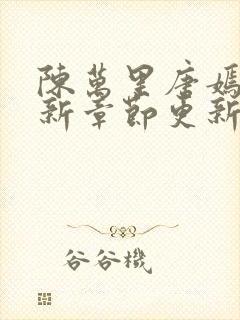 陳萬里唐嫣
新章節更新
谷谷機